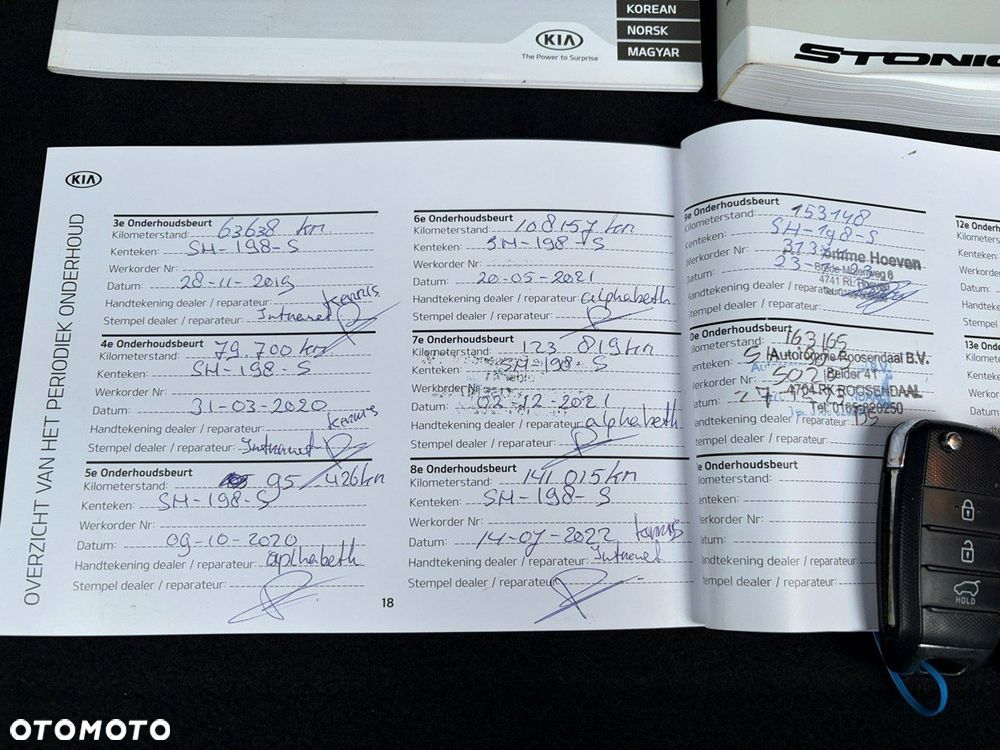 KOREAN
NORSK
MAGYAR
KIA
The Power to Surprise
STONIC
KIA
OVERZICHT VAN HET PERIODIEK ONDERHOUD
3e Onderhoudsbeurt
Kilometerstand: 63638 km
Kenteken: SH-198-S
Werkorder Nr:
Datum: 28-11-2019
Handtekening dealer / reparateur:
Stempel dealer / reparateur: Intranet
4e Onderhoudsbeurt
Kilometerstand: 79.700 km
Kenteken: SH-198-S
Werkorder Nr:
Datum: 31-03-2020
Handtekening dealer / reparateur:
Stempel dealer / reparateur: Intranet
5e Onderhoudsbeurt
Kilometerstand: 95.426 km
Kenteken: SH-198-S
Werkorder Nr:
Datum: 09-10-2020
Handtekening dealer / reparateur: aplhabeth
Stempel dealer / reparateur:
18
6e Onderhoudsbeurt
Kilometerstand: 108157 km
Kenteken: SH-198-S
Werkorder Nr:
Datum: 20-05-2021
Handtekening dealer / reparateur: alphabeth
Stempel dealer / reparateur:
7e Onderhoudsbeurt
Kilometerstand: 123.819 km
Kenteken: SH-198-S
Werkorder Nr:
Datum: 02-12-2021
Handtekening dealer / reparateur: alphabeth
Stempel dealer / reparateur:
8e Onderhoudsbeurt
Kilometerstand: 141.015 km
Kenteken: SH-198-S
Werkorder Nr:
Datum: 14-07-2022
Handtekening dealer / reparateur: Intranet
Stempel dealer / reparateur:
9e Onderhoudsbeurt
Kilometerstand: 153148
Kenteken: SH-198-S
Werkorder Nr:
Hoeven
Datum: 23-
4741
Handtekening dealer /
Stempel dealer / reparateur:
0e Onderhoudsbeurt
ilometerstand: 163165
Autoropme Roosendaal B.V.
Belder 41
erkorder Nr
4704 RK ROOSENDAAL
atum:
Tel. 0165
andtekening dealer / reparateur:
tempel dealer / reparateur:
e Onderhoudsbeurt
ilometerstand:
enteken:
erkorder Nr:
atum:
andtekening dealer / reparateur:
empel dealer / reparateur:
12e Onde
Kilomete
Kenteken
Werkord
Datum:
Handte
Stempe
13e On
Kilom
Kente
HOLD
OTOMOTO